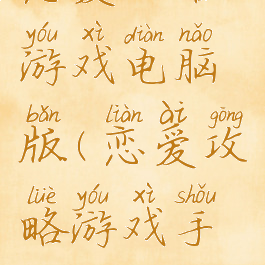 yóu xì diàn nǎo
游戏电脑
bǎn liàn ài gōng
版(恋爱攻
lüè yóu xì shǒu
略游戏手